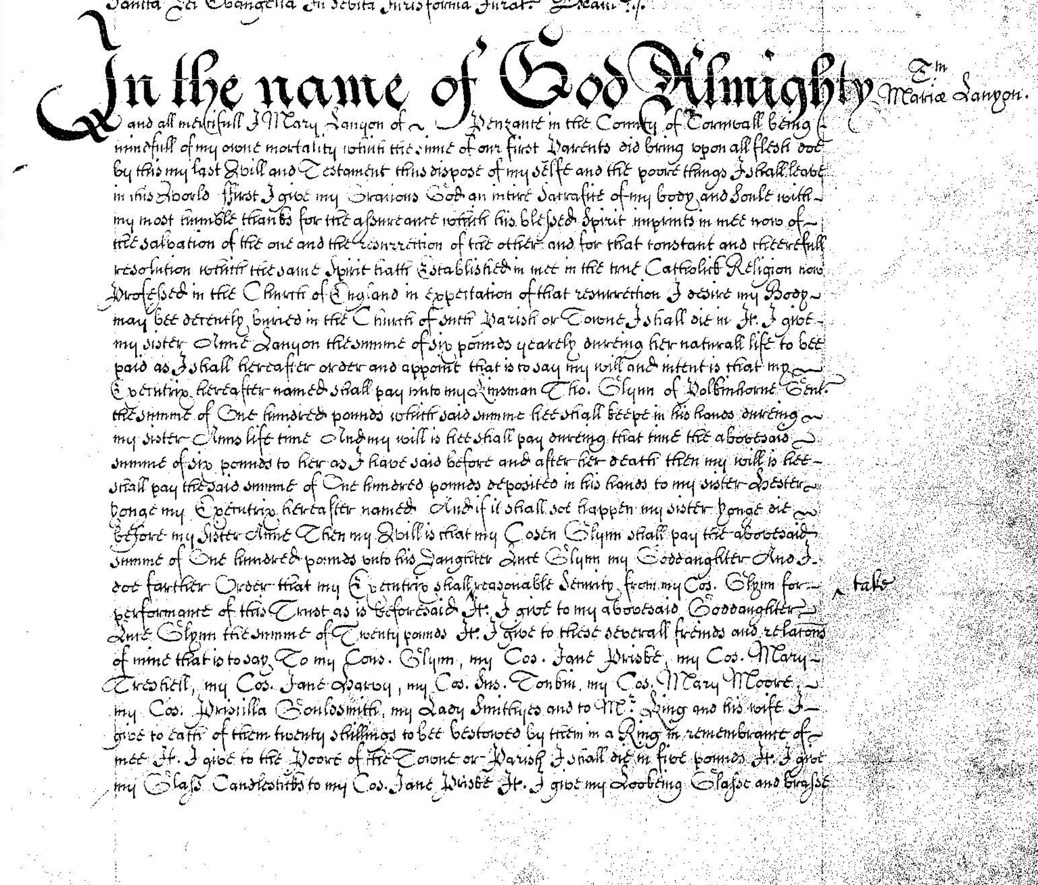 Sancta Dei Evangelia In debita Juris forma Jurat. Exam.
In the name of God Almighty
Tm
Mariæ Lanyon.
and all mercifull I Mary Lanyon of Penzance in the County of Cornwall being
mindfull of my owne mortality which the sinne of our first Parents did bring upon all flesh doe
by this my last Will and Testament thus dispose of my selfe and the poore things I shall leave
in this World First I give my Gracious God an intire Sacrafice of my body and Soule with
my most humble thanks for the assureance which his blessed Spirit imprints in mee now of
the salvation of the one and the resurrection of the other and for that constant and cheerefull
resolution which the same Spirit hath Established in mee in the true Catholick Religion now
Professed in the Church of England in expectation of that resurrection I desire my Body
may bee decently buried in the Church of such Parish or Towne I shall die in It. I give
my sister Anne Lanyon the summe of six pounds yearely dureing her naturall life to bee
paid as I shall hereafter order and appoint that is to say my will and intent is that my
Executrix hereafter named shall pay into my Kinsman Tho. Glynn of Polkinhorne Gent.
the summe of One hundred pounds which said summe hee shall keepe in his hands dureing
my sister Anns life time And my will is hee shall pay dureing that time the abovesaid
summe of six pounds to her as I have said before and after her death then my will is hee
shall pay the said summe of One hundred pounds deposited in his hands to my sister Hester
Yonge my Executrix hereafter named And if it shall soe happen my sister Yonge die
before my Sister Anne Then my Will is that my Cosen Glynn shall pay the abovesaid
summe of One hundred pounds unto his Daughter Luce Glynn my Goddaughter And I
doe farther Order that my Executrix shall reasonable Security from my Cos. Glynn for
^ take
performance of this Trust as is beforesaid It. I give to my abovesaid Goddaughter
Luce Glynn the summe of Twenty pounds It. I give to these severall freinds and relatons
of mine that is to say To my Cos. Glynn, my Cos. Jane Priske, my Cos. Mary
my Cos. Jane Harvy, my Cos. Tonkin, my Cos. Mary Moore,
my Cos. Priscilla Gouldsmith, my Lady Smithyes and to Mr. King and his wife I
give to each of them twenty shillings to bee bestowed by them in a Ring in remembrance of
mee It. I give to the Poore of the Towne or Parish I shall die in five pounds It. I give
my Glass Candlesticks to my Cos. Jane Priske It. I give my Lookeing Glasse and brasse